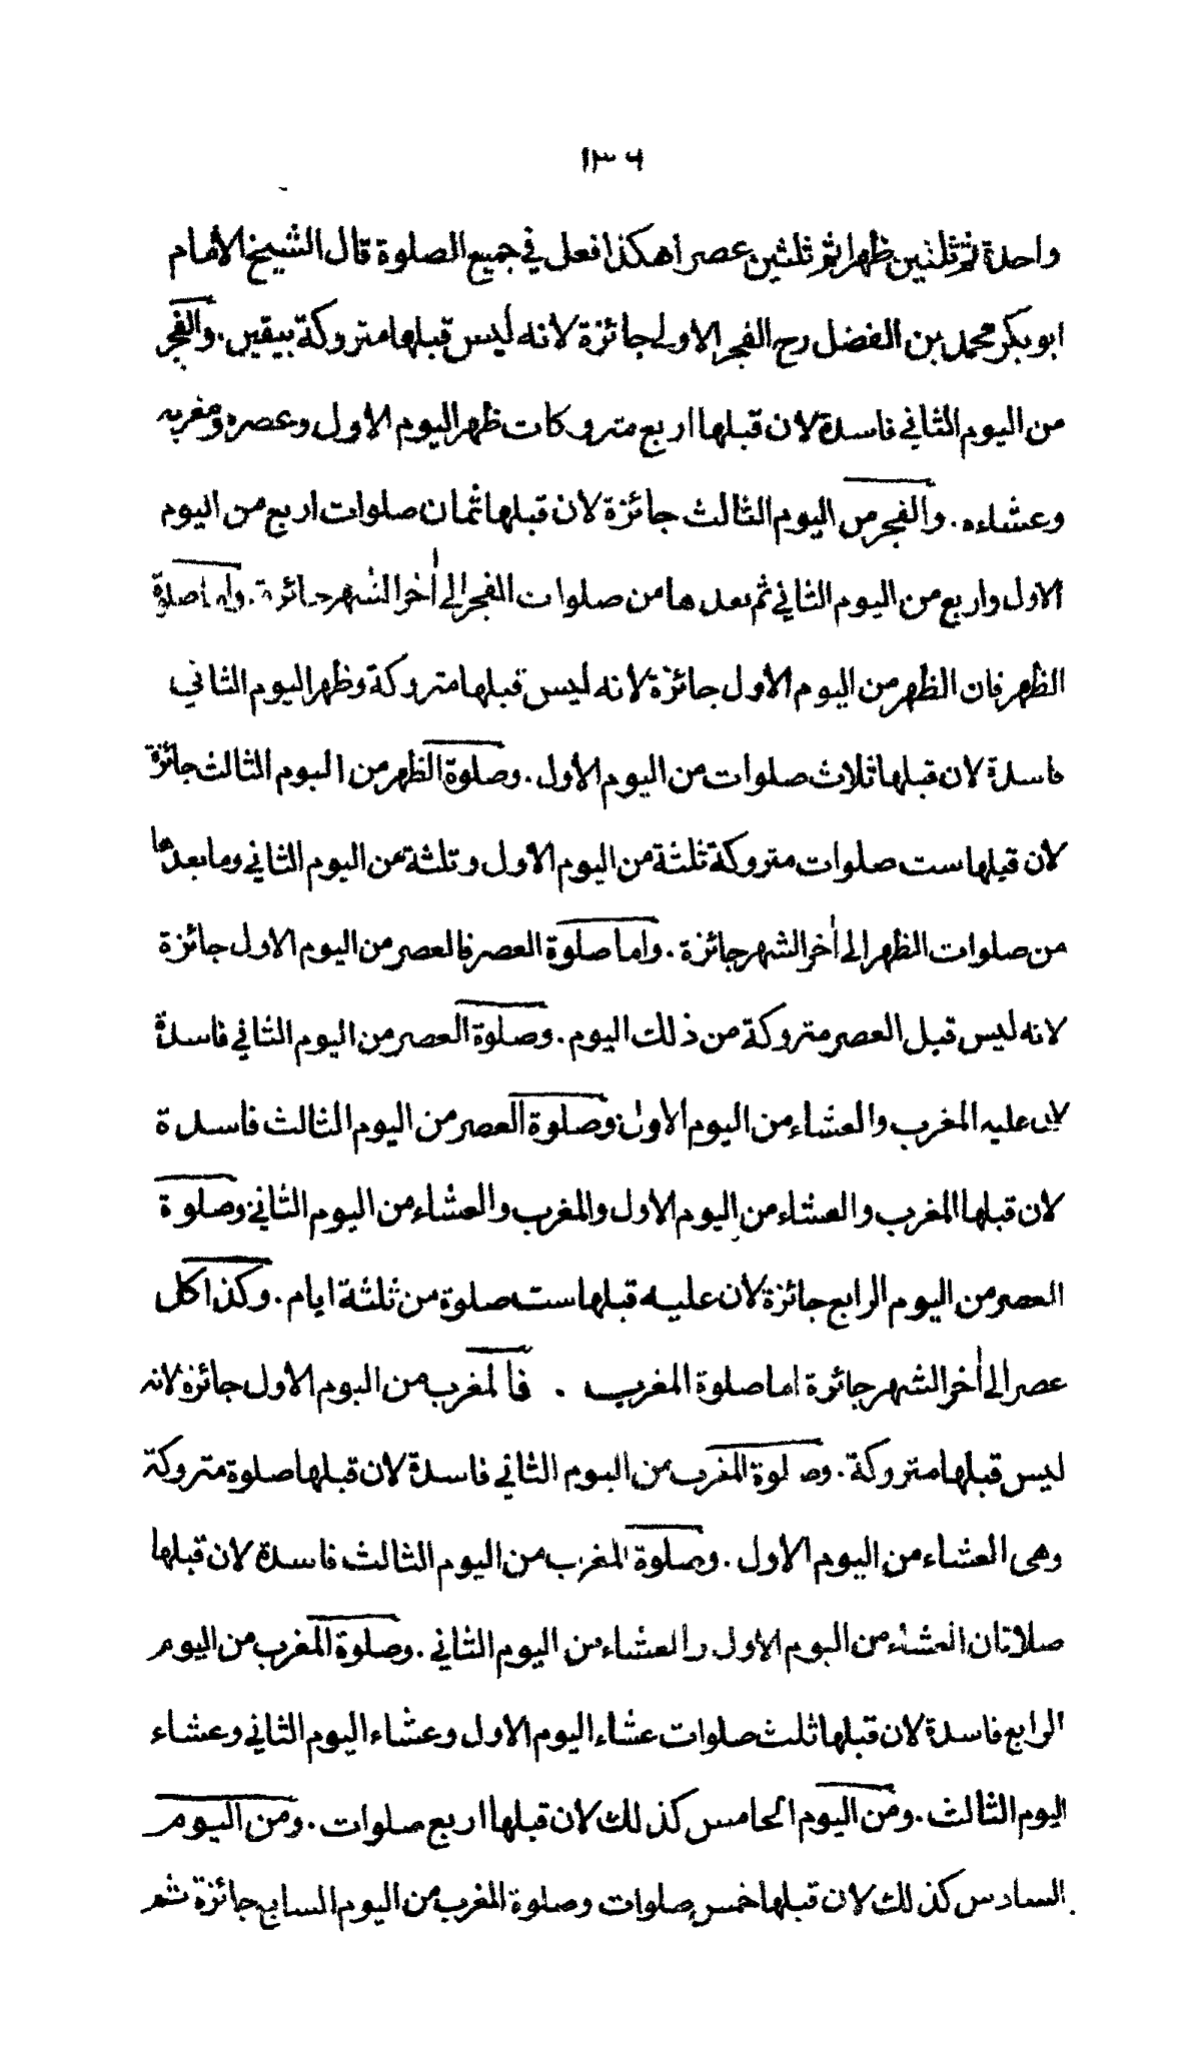 ١٣٦
واحدة ثم ثلثين ظهرا ثم ثلثين عصرا هكذا فعل في جميع الصلوة قال الشيخ الأمام
ابو بكر محمد بن الفضل رح الفجر الاولى جائزة لانه ليس قبلها متروكة بيقين . والفجر
من اليوم الثاني فاسدة لان قبلها اربع متروكات ظهر اليوم الاول وعصره ومغربه
وعشاءه . والفجر من اليوم الثالث جائزة لان قبلها ثمان صلوات اربع من اليوم
الاول واربع من اليوم الثاني ثم بعدها من صلوات الفجر الى أخر الشهر جائزة . واما صلوة
الظهر فان الظهر من اليوم الأول جائزة لانه ليس قبلها متروكة وظهر اليوم الثاني
فاسدة لان قبلها ثلاث صلوات من اليوم الأول . وصلوة الظهر من اليوم الثالث جائزة
لان قبلها ست صلوات متروكة ثلثة من اليوم الاول وثلثة من اليوم الثاني وما بعدها
من صلوات الظهر الى أخر الشهر جائزة . واما صلوة العصر فالعصر من اليوم الاول جائزة
لانه ليس قبل العصر متروكة من ذلك اليوم . وصلوة العصر من اليوم الثاني فاسدة
لان عليه المغرب والعشاء من اليوم الاول وصلوة العصر من اليوم الثالث فاسدة
لان قبلها المغرب والعشاء من اليوم الاول والمغرب والعشاء من اليوم الثاني وصلوة
العصر من اليوم الرابع جائزة لان عليه قبلها ست صلوة من ثلثة ايام . وكذا كل
عصر الى أخر الشهر جائزة اما صلوة المغرب . فالمغرب من اليوم الاول جائزة لانه
ليس قبلها متروكة . وصلوة المغرب من اليوم الثاني فاسدة لان قبلها صلوة متروكة
وهى العشاء من اليوم الاول . وصلوة المغرب من اليوم الثالث فاسدة لان قبلها
صلاتان العشاء من اليوم الأول والعشاء من اليوم الثاني . وصلوة المغرب من اليوم
الرابع فاسدة لان قبلها ثلث صلوات عشاء اليوم الاول وعشاء اليوم الثاني وعشاء
اليوم الثالث . ومن اليوم الخامس كذلك لان قبلها اربع صلوات . ومن اليوم
السادس كذلك لان قبلها خمس صلوات وصلوة المغرب من اليوم السابع جائزة ثم